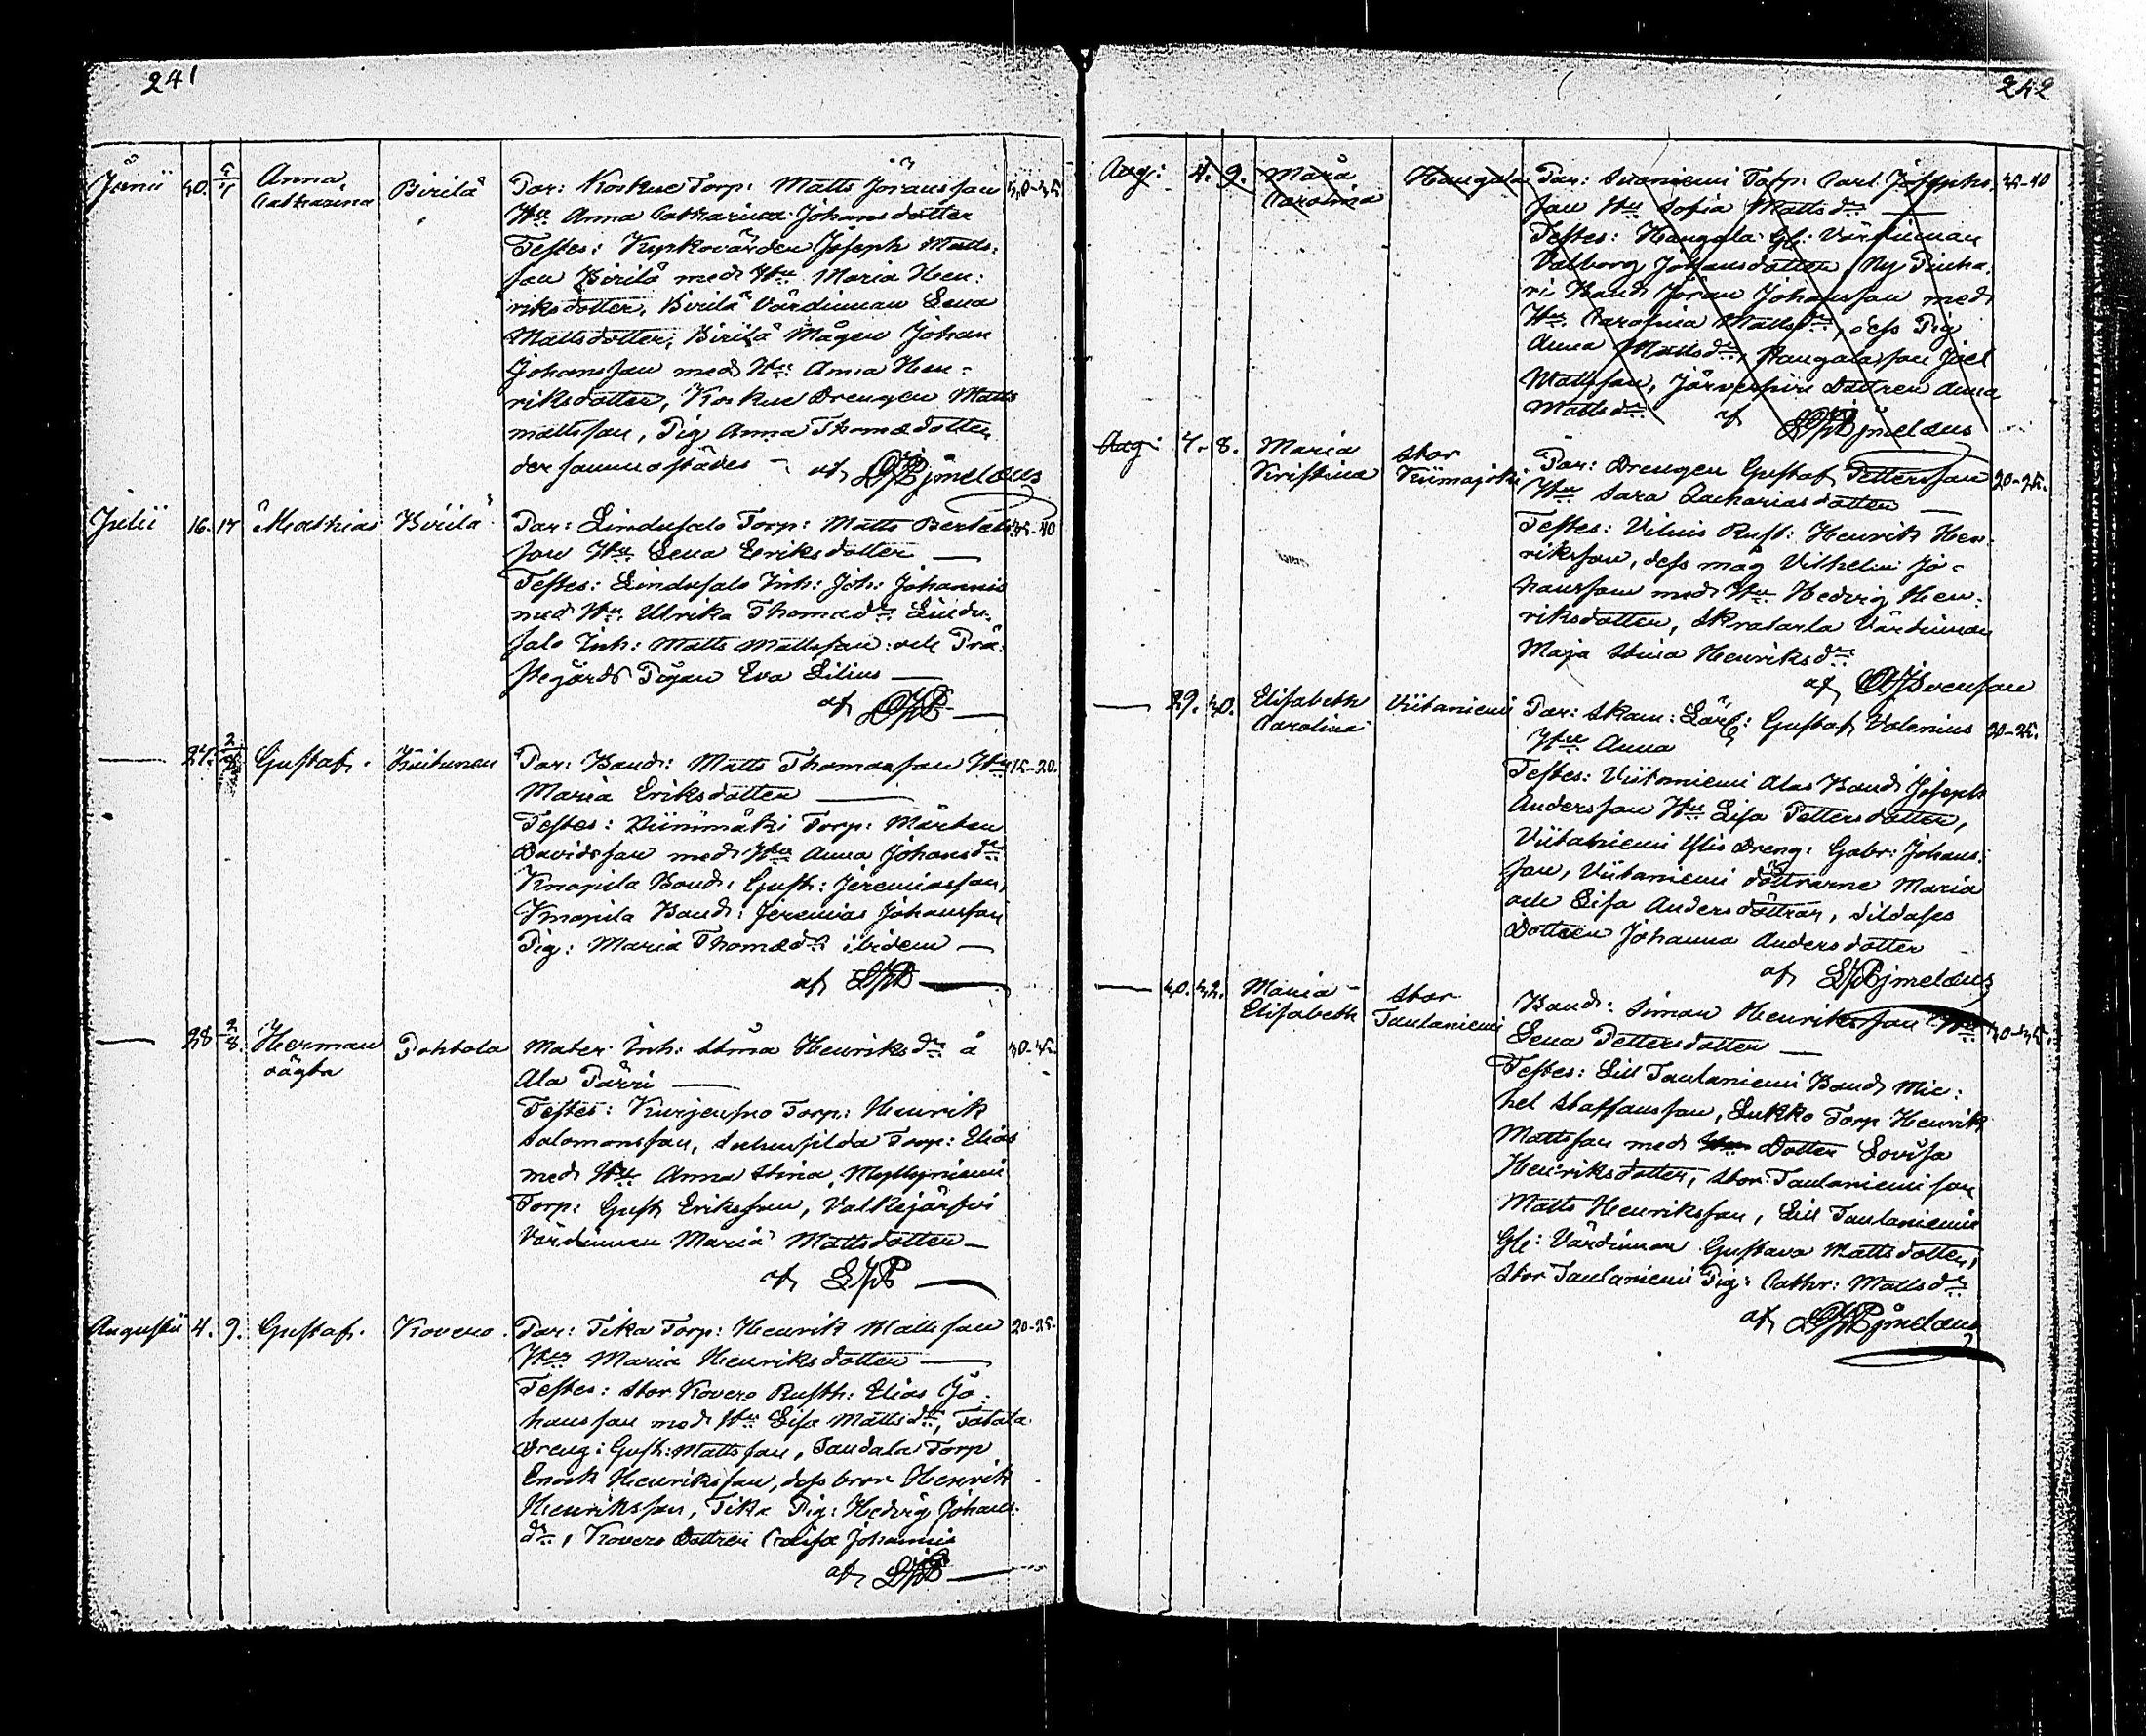 241
Junii 30. 5/7 Anna Catharina Birilä Par: Koskue Torp: Matts Jöransson 30-35
Hu Anna Catharina Johansdotter
Testes: Kyrkovärden Joseph Matts-
son Birilä med Hu Maria Hen-
riksdotter, Birilä Värdinnan Lena
Mattsdotter, Birilä Mågen Johan
Johansson med Hu: Anna Hen-
riksdotter, Koskue Drengen Matts
Mattsson, Pig Anna Thomædotter
dersammastädes — af
Julii 16. 17 Mathias Birilä Par: Lindusalo Torp: Matts Bertels- 35-40
son Hu Lena Eriksdotter —
Testes: Lindusalo Inh: Joh: Johannis
med Hu Ulrika Thomædr Lindu-
salo Inh: Matts Mattsson och Prä-
stegårds Pigan Eva Lilius —
af
— 27. Gustaf. Par: Bond: Matts Thomasson Hu 15-20.
Maria Eriksdotter —
Testes: Torp: Mårten
Davidsson med Hu Anna Johansdr
Knapila Bond: Gust: Jeremiasson,
Knapila Bond: Jeremias Johansson
Pig: Maria Thomædr ibidem —
af
— 28 2/8. Herman oägta Pohtola Mater Inh: Stina Henriksdr å 30-35.
Ala Pärri —
Testes: Torp: Henrik
Salomonsson, Torp: Elias
med Hu Anna Stina, Myllyniemi
Torp: Gust Eriksson, Valkejärfvi
Värdinnan Maria Mattsdotter —
af
Augustii 4. 9. Gustaf. Kovero. Par: Tika Torp: Henrik Mattsson 20-25.
Hu Maria Henriksdotter —
Testes: Stor Kovero Rusth: Elias Jo-
hansson med Hu Lisa Mattsdr,
Dreng: Gust: Mattsson, Torp
Enok Henriksson, dess bror Henrik
Henriksson, Tika Pig: Hedvig Johans-
dr, Kovero Dottren Caisa Johannis
af
242
Aug: 4. 9. Maria Carolina Hangala Par: Suoniemi Torp: Carl Josephs- 35-40
son Hu Sofia Mattsdr —
Testes: Hangala Gl: Värdinnan
Valborg Johansdotter, Ny
Bond Jöran Johansson med
Hu. Carolina Mattsdr, dess Pig
Anna Mattsdr, Hangala son Joel
Mattsson, Dottren Anna
Mattsdr af
Aug: 7. 8. Maria Kristina Stor Par: Drengen Gustaf Pettersson 20-25.
Hu Sara Zachariasdotter —
Testes: Rust: Henrik Hen-
riksson, dess måg Vilhelm Jo-
hansson med Hu Hedvig Hen-
riksdotter, Värdinnan
Maja Stina Henriksdr
af
— 29. 30. Elisabeth Carolina Viitaniemi Par: Skom: Lärl: Gustaf Valenius 20-25.
Hu Anna
Testes: Viitaniemi Alas Bond Joseph
Andersson Hu Lisa Pettersdotter,
Viitaniemi Ylis Dreng: Gabr: Johans-
son, Viitaniemi döttrarne Maria
och Lisa Andersdöttrar,
Dottren Johanna Andersdotter
af
— 30. Maria Elisabeth Stor Taulaniemi Bond: Simon Henriksson Hu 30-35.
Lena Pettersdotter —
Testes: Lill Taulaniemi Bond Mic-
hel Staffansson, Lukko Torp Henrik
Mattsson med Dotter Lovisa
Henriksdotter, Stor Taulaniemi son
Matts Henriksson, Lill Taulaniemi
Gl: Värdinnan Gustava Mattsdotter,
Stor Taulaniemi Pig: Cathr: Mattsdr
af